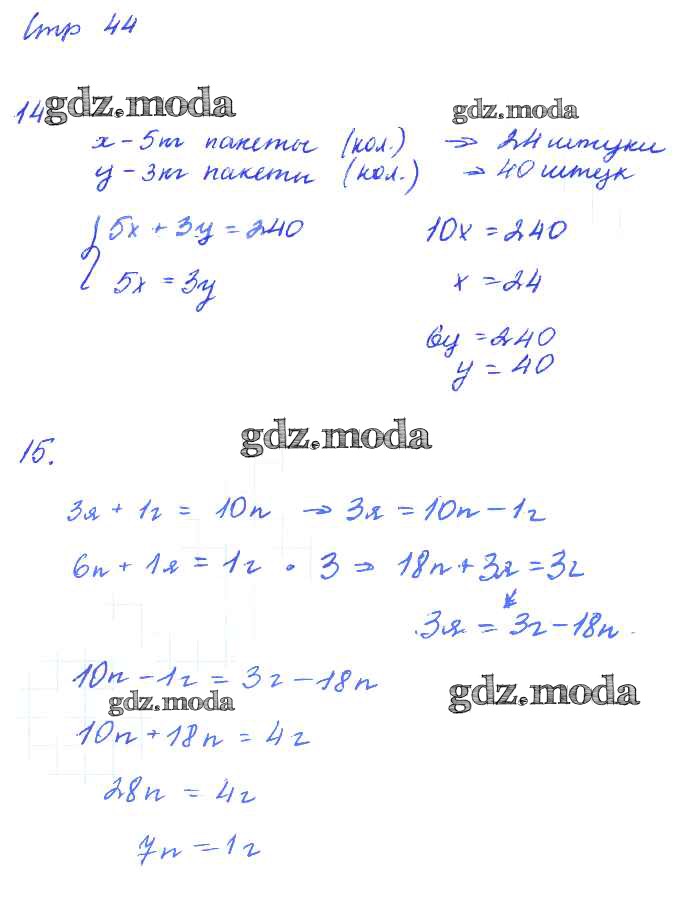 Стр 44
14 gdz.moda
gdz.moda
x - 5кг пакеты (кол.) → 24 штуки
y - 3кг пакеты (кол.) → 40 штук
{ 5x + 3y = 240
5x = 3y
10x = 240
x = 24
6y = 240
y = 40
gdz.moda
15.
3я + 1г = 10п → 3я = 10п - 1г
6п + 1я = 1г · 3 ⇒ 18п + 3я = 3г
3я = 3г - 18п
10п - 1г = 3г - 18п
gdz.moda
gdz.moda
10п + 18п = 4г
28п = 4г
7п = 1г